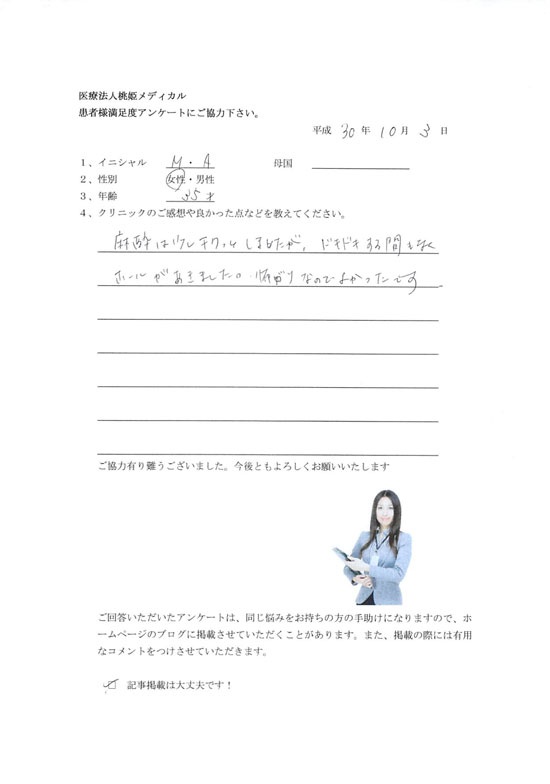 医療法人桃姫メディカル
患者様満足度アンケートにご協力下さい。
平成 30 年 10 月 3 日
1、イニシャル M・A 母国
2、性別 女性・男性
3、年齢 35才
4、クリニックのご感想や良かった点などを教えてください。
麻酔は少しチクッとしましたが、ドキドキする間もなく
ホールがあきました。怖がりなのでよかったです
ご協力有り難うございました。今後ともよろしくお願いいたします
ご回答いただいたアンケートは、同じ悩みをお持ちの方の手助けになりますので、ホ
ームページのブログに掲載させていただくことがあります。また、掲載の際には有用
なコメントをつけさせていただきます。
記事掲載は大丈夫です！